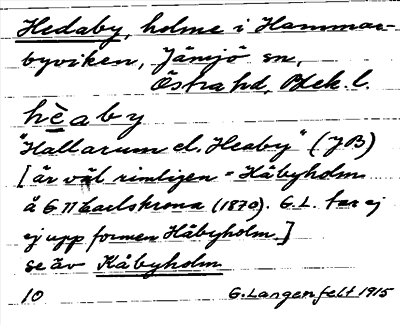 Hedaby, holme i Hammar-
byviken, Jämjö sn,
Östra hd, Blek. l.
hèaby
"Hallarum el. Heaby" (JB)
[är väl rimligen = Håbyholm
å G 11 Carlskrona (1870). G. L. tar ej
ej upp formen Håbyholm.]
se äv Kåbyholm
10 G. Langenfelt 1915